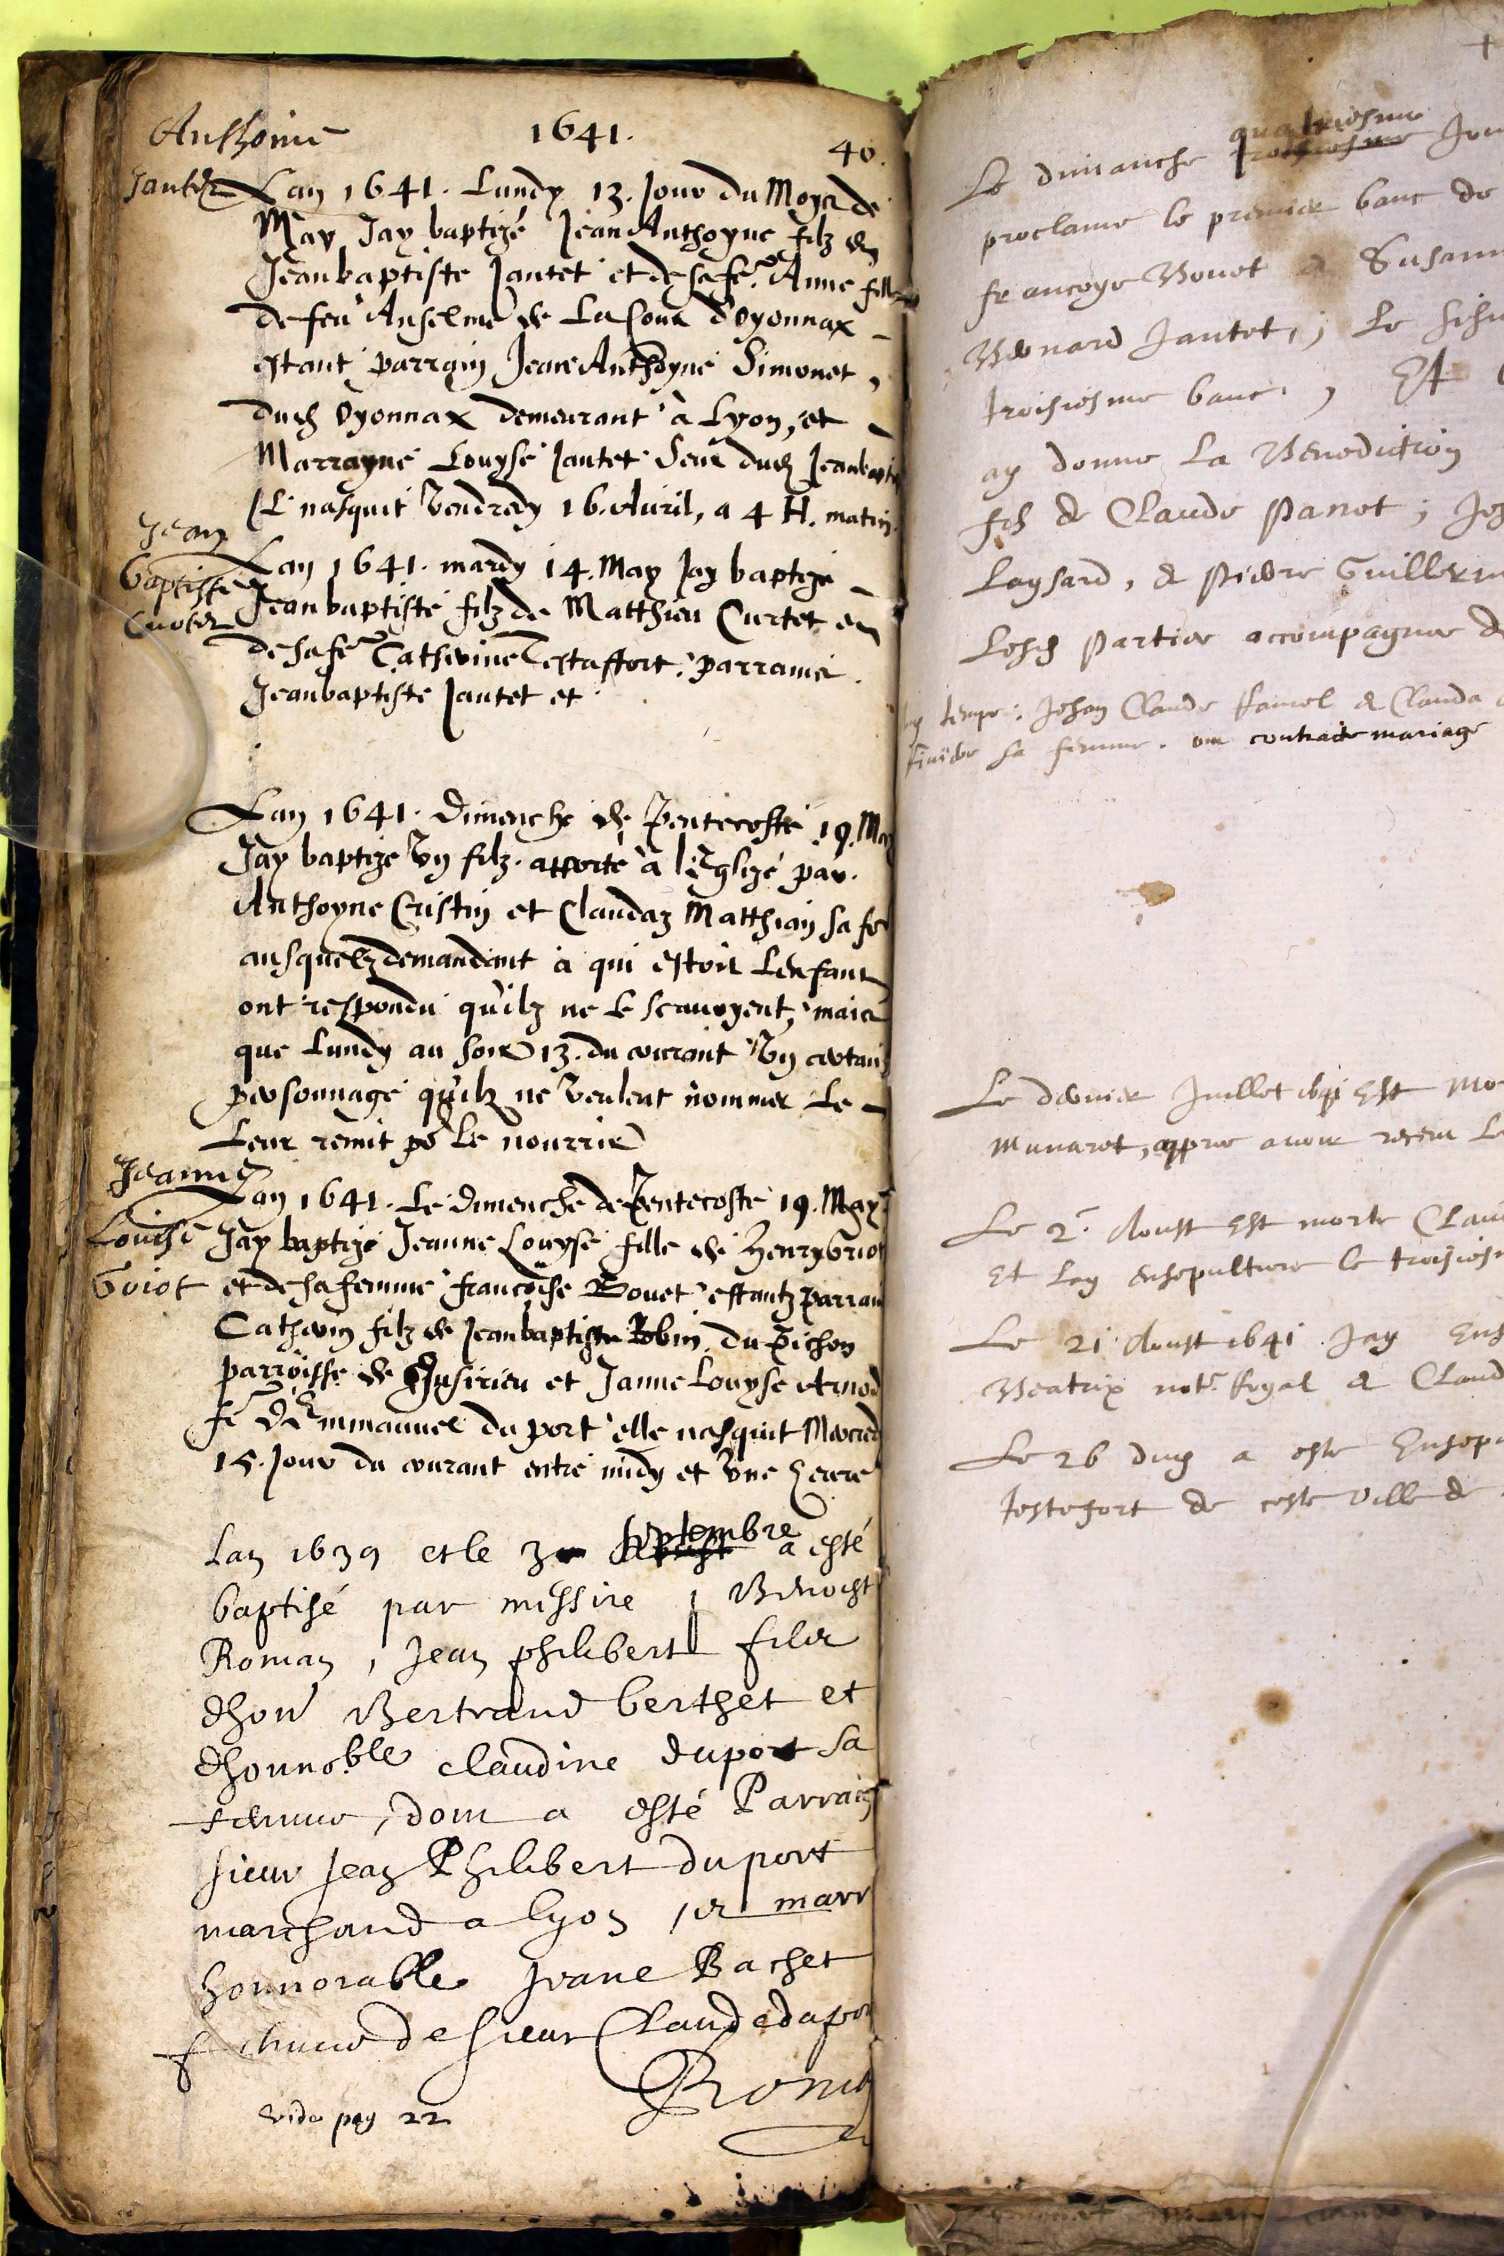 1641.
40.
Anthoine
Jantet
Lan 1641. Lundy 13. Jour du Moys de
May Jay baptizé Jean Anthoyne filz de
Jeanbaptiste Jantet et de sa fe. Anne fille
de feu Anselme de La Cour d'Oyonnax
estant parrain Jean Anthoyne Simonet,
dud Oyonnax demeurant à Lyon, et
Marrayne Louyse Jantet seur dud Jeanbaptis
Il nasquit Vendredy 16. Auril, a 4 H. matin
Jean
Baptiste
Curtet
Lan 1641. mardy 14. May Jay baptizé
Jeanbaptiste filz de Matthieu Curtet et
de sa fe Catherine Testaffort. parrains
Jeanbaptiste Jantet et
Lan 1641. Dimenche de Pentecoste 19. May
Jay baptizé Vn filz. apporté à l'Eglize par.
Anthoyne Cristin et Claudaz Matthian sa fe
ausquelz demandant à qui estoit Lenfant
ont respondu qu'ilz ne le scauoyent, mais
que Lundy au soir 13. du courant Vn certain
personnage qu'ilz ne veulent nommer Le
Leur remit po Le nourrir
Jeanne
Louise
Griot
Lan 1641. Le dimenche de Pentecoste 19. May
Jay baptizé Jeanne Louyse fille de Henry Griot
et de sa femme francoise Bouet estantz parrain
Catherin filz de Jeanbaptiste Robin du Pichon
parroisse de Jusirieu et Janne Louyse Arnod
fe d'Emmanuel du port elle nasquit Mecred
15. Jour du courant entre midy et vne heure
Lan 1639 et le 3 septembre a esté
baptisé par messire Benoist
Roman, Jean philibert filz
dhon Bertrand berthet et
dhonnoble claudine duport sa
femme, dont a esté Parrain
sieur Jean Philibert duport
marchand a lyon et marr
honnorable Jeane Bachet
femme de sieur Claude dupor
Roman
vide pag 22
Le dimanche quatriesme Jour
proclame le premier banc de
francoys Bouet et Susann
Bernard Jantet,
troisiesme banc, Et
ay donne La Benediction
fils de Claude Panet;
Loysard, & Pierre Guillerm
Lesd Parties accompagnes de
temps. Jehan Claude & Clauda
sa femme. contracte mariage
Le dernier Juillet Est Mo
Munaret, appres auoir receu Le
Le 2e. Aoust Est morte Clau
Et Lay ensepulture le troisiesm
Le 21 Aoust 1641. Jay Ens
Beatrix notre. Royal & Claud
Le 26 dud a este Ensepu
testefort de ceste ville de